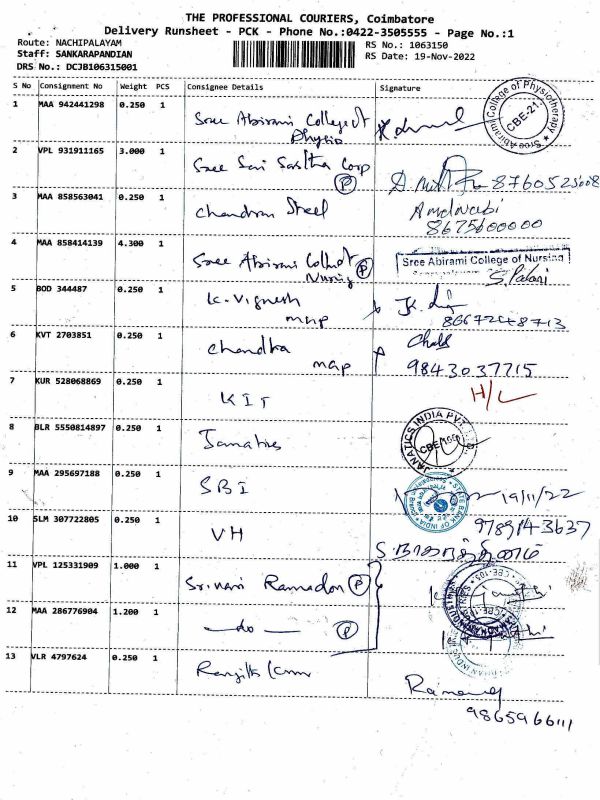 THE PROFESSIONAL COURIERS, Coimbatore
Delivery Runsheet - PCK - Phone No.:0422-3505555 - Page No.:1
Route: NACHIPALAYAM
Staff: SANKARAPANDIAN
DRS No.: DCJB106315001
RS No.: 1063150
RS Date: 19-Nov-2022
S No Consignment No Weight PCS Consignee Details Signature
1 MAA 942441298 0.250 1 Sree Abirami College of
Physio
Sree Abirami College of Physiotherapy
CBE-21
2 VPL 931911165 3.000 1 Sree Sai Sastha Corp
P
8760525008
3 MAA 858563041 0.250 1 Chandran Steel
8675600000
4 MAA 858414139 4.300 1 Sree Abirami College of
Nursing P
Sree Abirami College of Nursing
S. Palani
5 BOD 344487 0.250 1 K. Vignesh
map
8667248713
6 KVT 2703851 0.250 1 Chandra
map
9843037715
7 KUR 528068869 0.250 1 KIT H/L
8 BLR 5550814897 0.250 1 Janatics
JANATICS INDIA PVT. LTD
9 MAA 295697188 0.250 1 SBI 19/11/22
STATE BANK OF INDIA
10 SLM 307722805 0.250 1 VH
9789143637
11 VPL 125331909 1.000 1 P
12 MAA 286776904 1.200 1 — do — P
13 VLR 4797624 0.250 1 Ranjith Kumar
9865966111